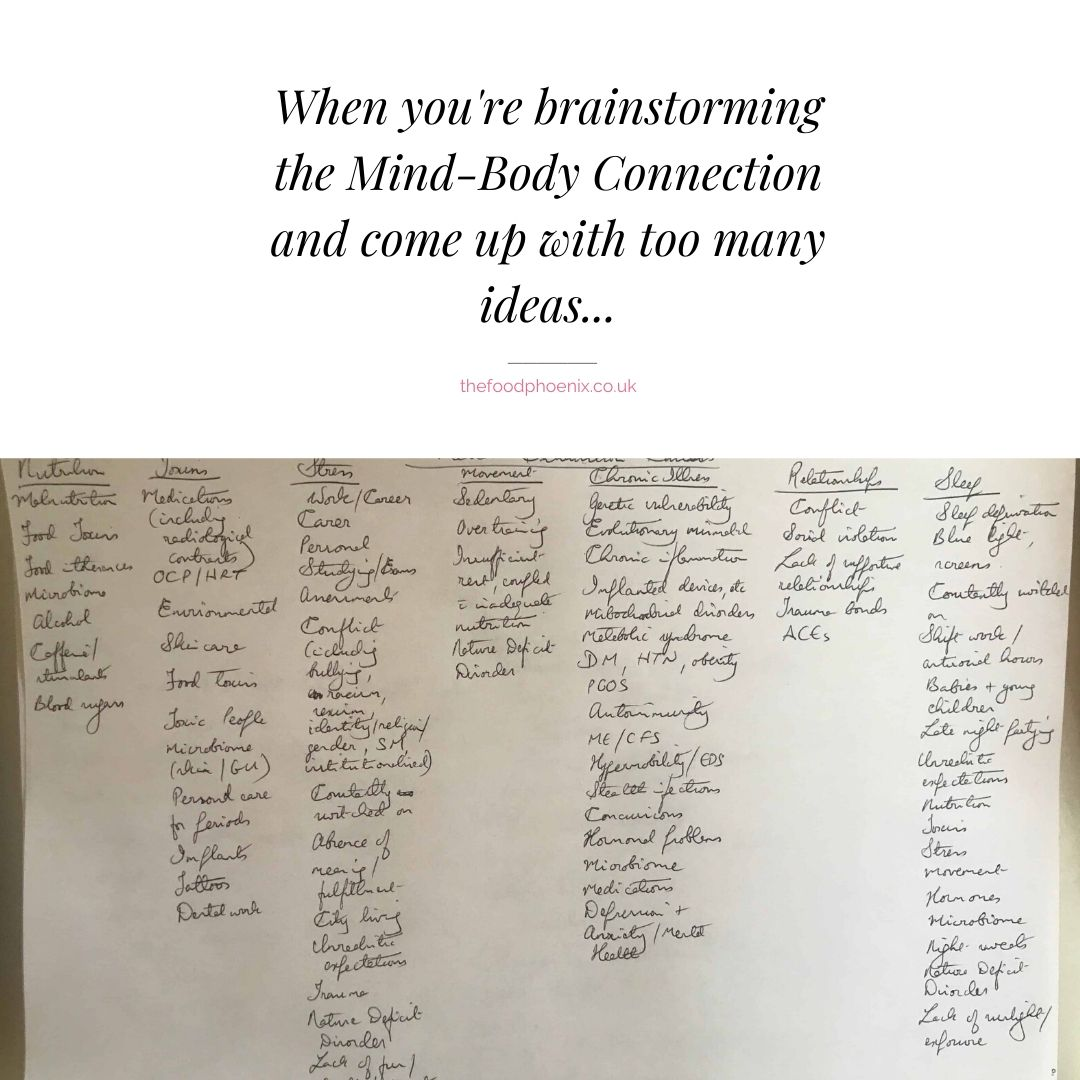 When you're brainstorming
the Mind-Body Connection
and come up with too many
ideas...
thefoodphoenix.co.uk
Nutrition
Malnutrition
Food Toxins
Food
Microbiome
Alcohol
Caffeine/
stimulants
Blood sugars
Toxins
Medications
(including
radiological
contrasts)
OCP/HRT
Environmental
Skin care
Food toxins
Toxic People
Microbiome
(skin/GU)
Personal care
for periods
Implants
Tattoos
Dental work
Stress
Work/Career
Carer
Personal
Studying/Exams
Assessments
Conflict
(including
bullying,
racism,
sexism,
identity/religion/
gender, SM,
institutionalised)
Constantly
switched on
Absence of
meaning/
fulfillment
City living
Unrealistic
expectations
Trauma
Nature Deficit
Disorder
Lack of fun/
Movement
Sedentary
Overtraining
Insufficient
rest, coupled
c̄ inadequate
nutrition
Nature Deficit
Disorder
Chronic Illness
Genetic vulnerability
Evolutionary mismatch
Chronic inflammation
Implanted devices, etc
Mitochondrial disorders
Metabolic syndrome
DM, HTN, obesity
PCOS
Autoimmunity
ME/CFS
Hypermobility/EDS
Stealth infections
Concussions
Hormonal problems
Microbiome
Medications
Depression +
Anxiety/Mental
Health
Relationships
Conflict
Social isolation
Lack of supportive
relationships
Trauma bonds
ACEs
Sleep
Sleep deprivation
Blue light,
screens
Constantly switched
on
Shift work/
antisocial hours
Babies + young
children
Late night partying
Unrealistic
expectations
Nutrition
Toxins
Stress
Movement
Hormones
Microbiome
Night sweats
Nature Deficit
Disorder
Lack of sunlight/
exposure